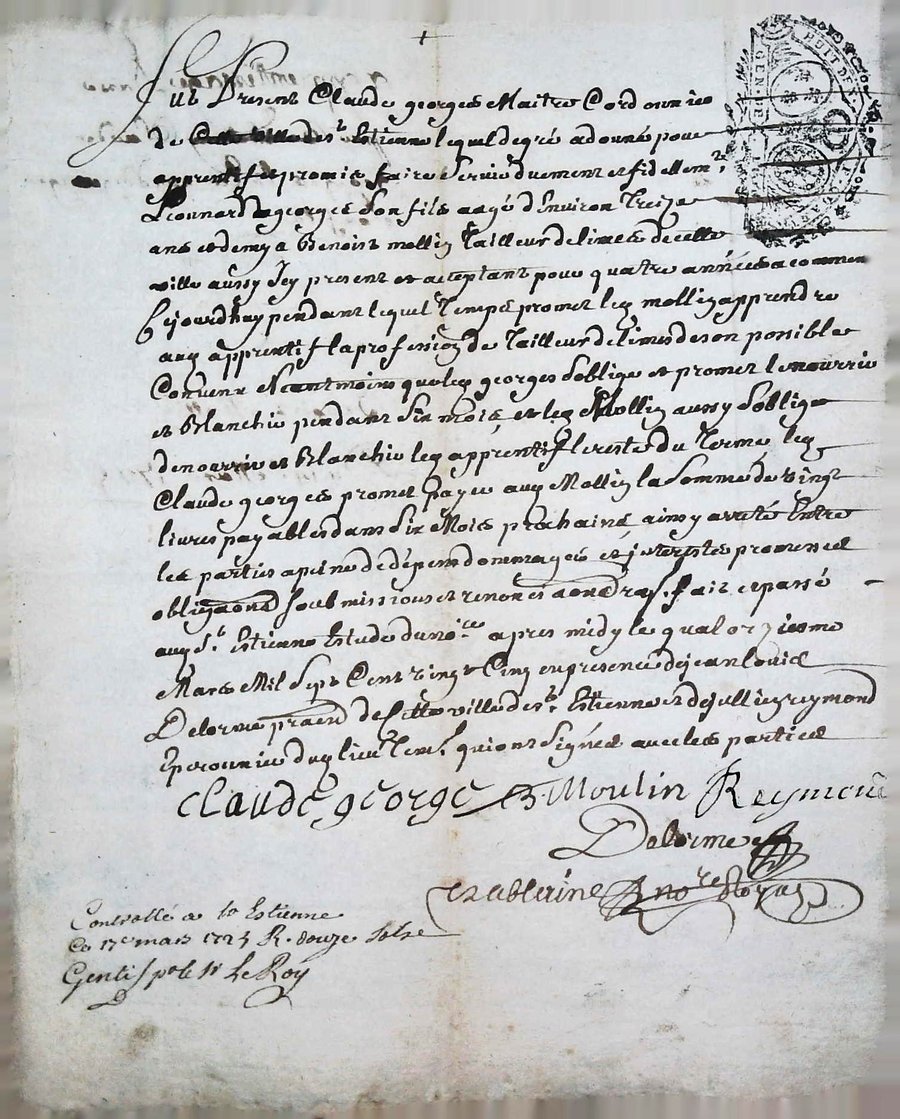 Fut Present Claude georges Maitre Cordonnier
de Cette ville de st Estienne lequel degré a donné pour
apprentif et promis faire servir duement et fidellemt
Leonnard georges son fils aagé d'Environ Treize
ans et demy a Benoist mollin Tailleur de limes de cette
ville aussy Icy present et acceptant pour quatre années a commen
Cejourdhuy pendant lequel Temps promet led mollin apprendre
aud apprentif la profession de Tailleur de limes de son possible
Convenu Neantmoins que led georges s'oblige et promet le nourrir
et Blanchir pendant six mois, et led Mollin aussy s'oblige
de nourrir et Blanchir led apprentif le reste du Terme led
Claude georges promet payer aud Mollin la somme de vingt
livres payables dans six Mois prochains ainsy arreté Entre
les parties a peine de dépens dommages et jnterests promesses
obligaons soubmissions et renonces fait et passé
aud st Estienne Estude du nore apres midy le quatorziesme
Mars Mil Sept Cent vingt Cinq en presence de jean louis
Delorme de Cette ville de st Estienne et de jullien reymond
Eperonnier dud lieu qui ont signés avec les parties
Claude george B Moulin Reymond
Delorme
nore Royal
HUIT DEN
GEN. DE
Controllé a st Estienne
Ce 17e mars 1725 R. douze sols
Le Roy